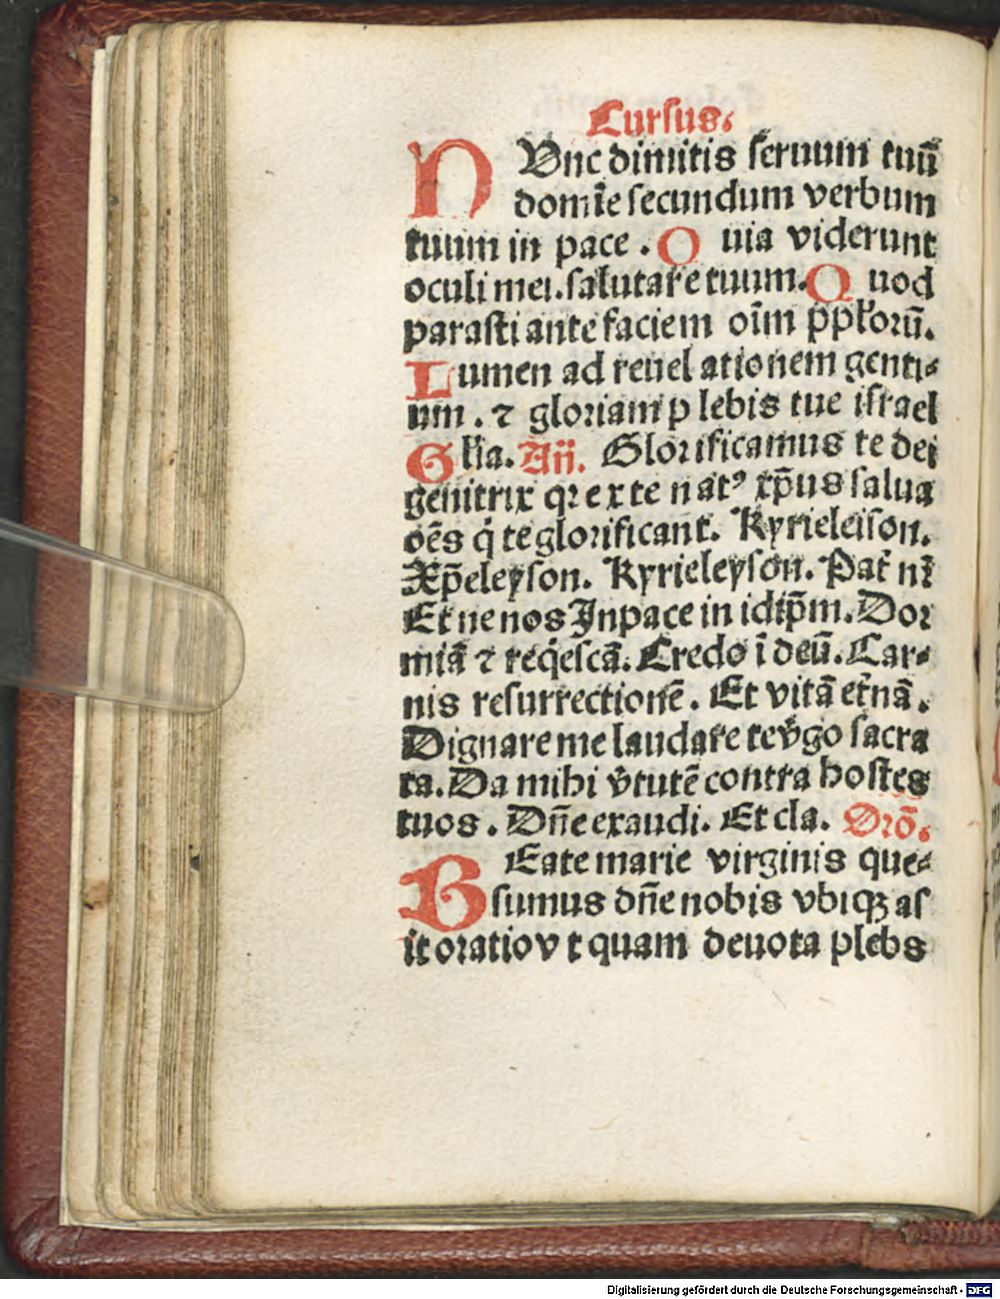 Cursus.
NUnc dimitis seruum tuū
domīe secundum verbum
tuum in pace . Quia viderunt
oculi mei. salutare tuum. Quod
parasti ante faciem oīm pp̄loꝝ.
Lumen ad reuel ationem genti⸗
um . ⁊ gloriam p lebis tue israel
Gľia. Añ. Glorificamus te dei
genitrix qꝛ ex te nat⁹ xp̄us salua
oēs q̇ te glorificant. Kyrieleison.
Xp̄eleyson. Kyrieleyson. Pat̄ nr̄
Et ne nos In pace in idip̄m. Dor
miā ⁊ req̇escā. Credo ī deū. Car⸗
nis resurrectionē . Et vitā et̄nā .
Dignare me laudare te v̄go sacra
ta. Da mihi v̄tutē contra hostes
tuos . Dn̄e exaudi. Et cla. Orō.
BEate marie virginis que⸗
sumus dn̄e nobis vbiqꝫ as
it oratio v t quam deuota plebs
Digitalisierung gefördert durch die Deutsche Forschungsgemeinschaft - DFG